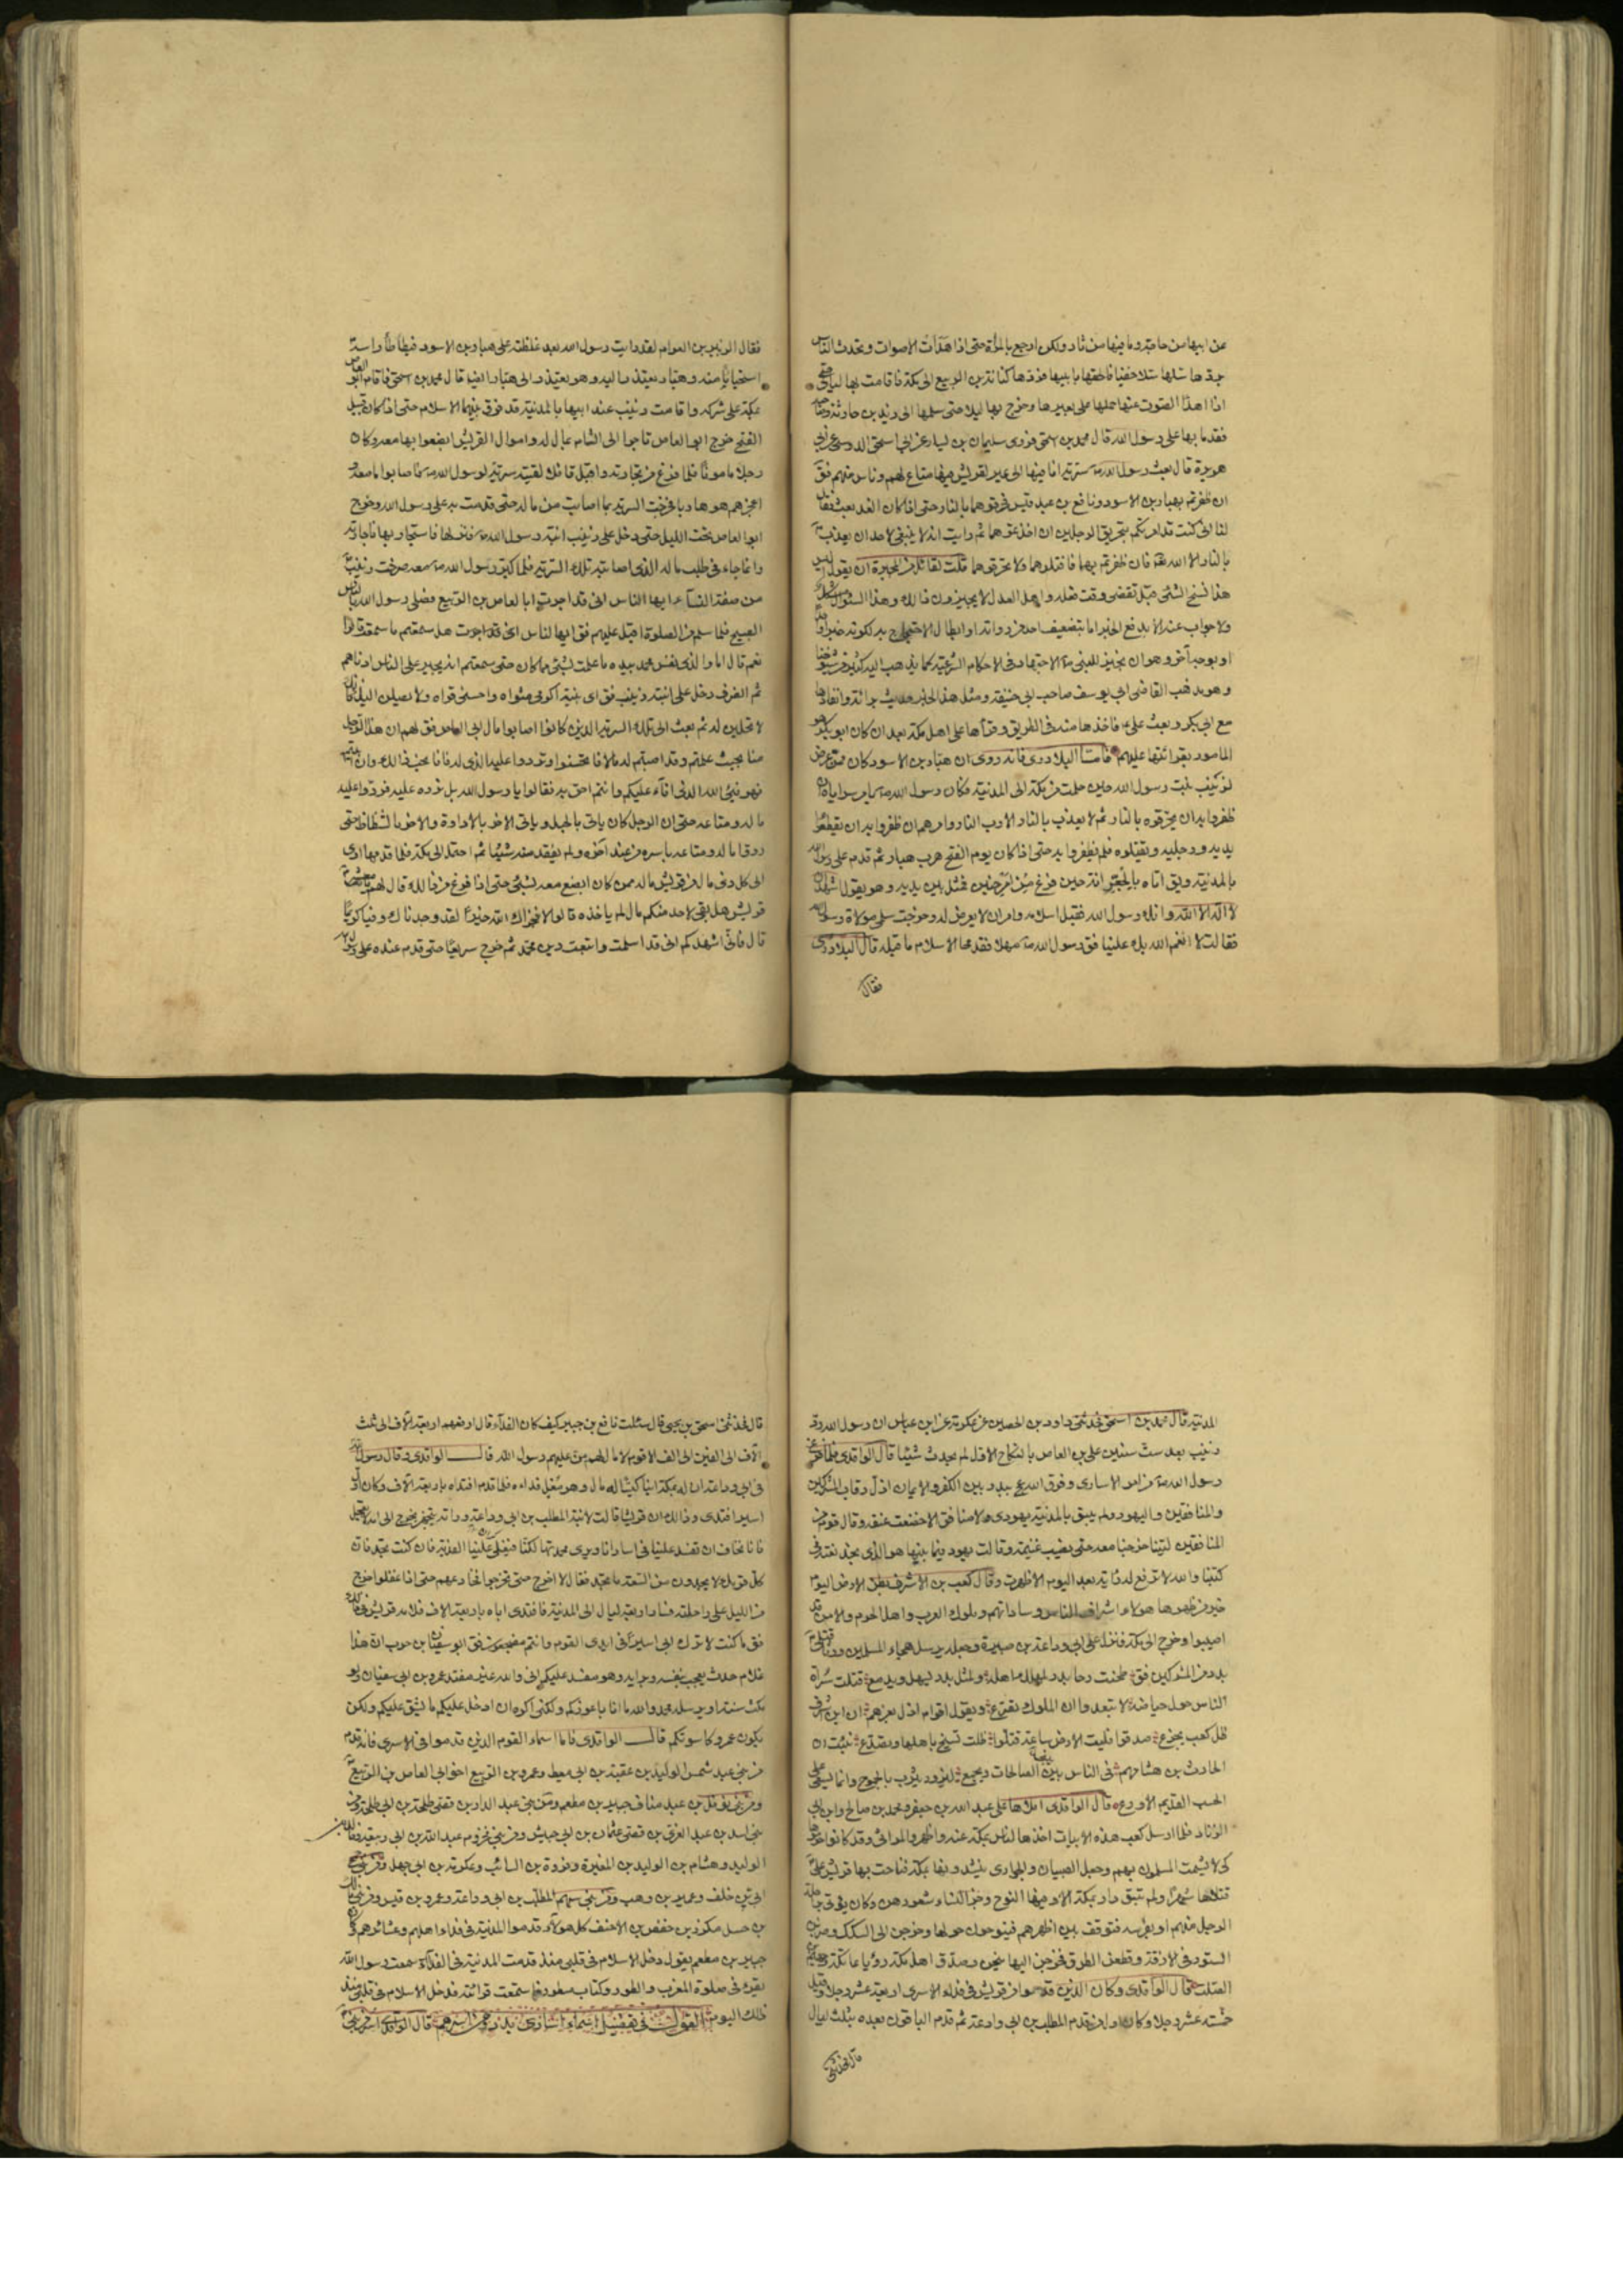 عن ابيها من حاجة وما فيها من ثار ولكن ارجع بالمرأة حتى اذا هدأت الاصوات وتحدث الناس
بردها سلها سلا خفيا فالحقها بابيها فردها كنانة بن الربيع الى مكة فاقامت بها ليالى حتى
اذا هدأ الصوت عنها حملها على بعيرها وخرج بها ليلا حتى سلمها الى زيد بن حارثة وصاحبه
فقدما بها على رسول الله قال محمد بن اسحق فروى سليمان بن يسار عن ابى اسحق الدوسى عن ابى
هريرة قال بعث رسول الله ص سرية انا فيها الى عير لقريش فيها متاع لهم وناس منهم فق
ان ظفرتم بهبار بن الاسود ونافع بن عبد قيس فحرقوهما بالنار حتى اذا كان الغد بعث فقال
لنا انى كنت قد امرتكم بتحريق الرجلين ان اخذتموهما ثم رايت انه لا ينبغى لاحد ان يعذب
بالنار الا الله تع فان ظفرتم بهما فاقتلوهما ولا تحرقوهما قلت لقائل من المجبرة ان يقول اليس
هذا نسخ الشئ قبل تقضى وقت فعله واهل العدل لا يجيزون ذالك وهذا السئوال مشكل
ولا جواب عنه الا بدفع الخبر اما بتضعيف احد من رواته او ابطال الاحتجاج به لكونه خبر واحد
او بوجه آخر وهو ان نجيز للنبى ص الاجتهاد فى الاحكام الشرعية كما يذهب اليه كثير من شيوخنا
وهو مذهب القاضى ابى يوسف صاحب ابى حنيفة ومثل هذا الخبر حديث برائة وانفاذها
مع ابى بكر وبعث على ع فاخذها منه فى الطريق وقرأها على اهل مكة بعد ان كان ابو بكر هو
المامور بقرائتها عليهم فامـــا البلاذرى فانه روى ان هبار بن الاسود كان ممن عرض
لزينب بنت رسول الله حين حملت من مكة الى المدينة فكان رسول الله ص يامر سراياه ان
ظفروا به ان يحرقوه بالنار ثم لا يعذب بالنار الا رب النار وامرهم ان ظفروا به ان يقطعوا
يديه ورجليه ويقتلوه فلم يظفروا به حتى اذا كان يوم الفتح هرب هبار ثم قدم على رسول الله
بالمدينة ويق اتاه بالجعرانة حين فرغ من امر حنين فمثل بين يديه وهو يقول اشهد ان
لا اله الا الله وانك رسول الله فقبل اسلامه وامر ان لا يعرض له وخرجت سلمى مولاة رسول الله
فقالت لا انعم الله بك علينا فق رسول الله ص مهلا فقد محا الاسلام ما قبله قال البلاذرى
فقال
فقال الزبير بن العوام لقد رايت رسول الله بعد غلظته على هبار بن الاسود فيطأطأ راسه
استحيائا منه وهبار يعتذر اليه وهو يعتذر الى هبار ايضا قال محمد بن اسحق فاقام ابو العاص
بمكة على شركه واقامت زينب عند ابيها بالمدينة قد فرق بينهما الاسلام حتى اذا كان قبيل
الفتح خرج ابو العاص تاجرا الى الشام بمال له واموال القريش ابضعوا بها معه وكان
رجلا مامونا فلما فرغ من تجارته واقبل قافلا لقيته سرية لرسول الله ص فاصابوا ما معه و
اعجزهم هو هاربا فخرجت السرية بما اصابت من ماله حتى قدمت به على رسول الله وخرج
ابو العاص تحت الليل حتى دخل على زينب ابنة رسول الله ص منزلها فاستجار بها فاجارته
وانما جاء فى طلب ماله الذى اصابته تلك السرية فلما كبر رسول الله ص معه صرخت زينب
من صفة النساء ايها الناس انى قد اجرت ابا العاص بن الربيع فصلى رسول الله بالناس
الصبح فلما سلم من الصلوة اقبل عليهم فق ايها الناس انى قد اجرت هل سمعتم ما سمعت قالوا
نعم قال اما والذى نفس محمد بيده ما علمت بشئ مما كان حتى سمعتم انه يجير على الناس ادناهم
ثم انصرف دخل على ابنته زينب فق اى بنية اكرمى مثواه واحسنى قراه ولا يصلن اليك فانك
لا تحلين له ثم بعث الى تلك السرية الذين كانوا اصابوا مال ابى العاص فق لهم ان هذا الرجل
منا بحيث علمتم وقد اصبتم له مالا فا تحسنوا وتردوا عليه الذى له فانا نحب ذالك وان ابيتم
فهو فيئ الله الذى افاء عليكم وانتم احق به فقالوا يا رسول الله بل نرده عليه فردوا عليه
ماله ومتاعه حتى ان الرجل كان ياتى بالحبل وياتى الاخر بالاداوة والاخر بالشظاظ حتى
ردوا ماله ومتاعه باسره من عند آخره ولم يفقد منه شيئا ثم احتمل الى مكة فلما قدمها ادى
الى كل ذى مال من قريش ماله ممن كان ابضع معه بشئ حتى اذا فرغ من ذالك قال لهم يا معشر
قريش هل بقى لاحد منكم مال لم ياخذه قالوا لا فجزاك الله خيرا لقد وجدناك وفيا كريما
قال فانى اشهدكم انى قد اسلمت واتبعت دين محمد ثم خرج سريعا حتى قدم عنده على رسول
المدينة قال محمد بن اسحق فحدثنى داود بن الحصين عن عكرمة عن ابن عباس ان رسول الله رد
زينب بعد ست سنين على بن العاص بالنكاح الاول لم يحدث شيئا قال الواقدى فلما فرغ
رسول الله ص من امر الاسارى وفرق الله عج ببدر بين الكفر والايمان اذل رقاب المشركين
والمنافقين واليهود ولم يبق بالمدينة يهودى ولا منافق الا خضعت عنقه وقال قوم من
المنافقين ليتنا خرجنا معه حتى نصيب غنيمة وقالت يهود فيما بينها هو الذى نجد نعته فى
كتبنا والله لا ترفع له راية بعد اليوم الا ظهرت وقال كعب بن الاشرف بطن الارض اليوم
خير من ظهرها هولاء اشراف الناس وساداتهم وملوك العرب واهل الحرم والامن قد
اصيبوا وخرج الى مكة فنزل على ابى وداعة بن صبيرة وجعل يرسل هجاء المسلمين ورثاء قتلى
بدر من المشركين فق طحنت رحا بدر لمهلك اهله ولمثل بدر يستهل ويدمع قتلت سراة
الناس حول حياضه لا تبعدوا ان الملوك تصرع ويقول اقوام اذل بعزهم ان ابن اشرف
ظل كعب يجزع صدقوا فليت الارض ساعة قتلوا ظلت تسيخ باهلها وتصدع نبئت ان
الحارث بن هشامهم فى الناس يبنى الصالحات ويجمع ليزور يثرب بالجموع وانما يسعى على
الحسب القديم الاروع قال الواقدى املاها على عبد الله بن جعفر ومحمد بن صالح وابن ابى
الزناد فلما ارسل كعب هذه الابيات اخذها الناس بمكة عنه واظهروا المراثى وقد كانوا حرموها
كى لا يشمت المسلمون بهم وجعل الصبيان والجوارى ينشدونها بمكة فناحت بها قريش على
قتلاها شهرا ولم تبق دار بمكة الا وفيها النوح وجز النساء شعورهن وكان يؤتى براحلة
الرجل منهم او بفرسه فتوقف بين اظهرهم فينوحون حولها وخرجن الى السكك وضربن
الستور فى الازقة وقطعن الطرق فخرجن اليها ينحن وصدق اهل مكة رؤيا عاتكة وجهيم
الصلت قال الواقدى وكان الذين قدموا من قريش فى فداء الاسرى اربعة عشر رجلا وقيل
خمسة عشر رجلا وكان اول من قدم المطلب بن ابى وداعة ثم قدم الباقون بعده بثلث ليال
قال فحدثنى
قال فحدثنى اسحق بن يحيى قال سئلت نافع بن جبير كيف كان الفداء قال ارفعهم اربعة آلاف الى ثلث
آلاف الى الفين الى الف الا قوم لا مال لهم من عليهم رسول الله قالـــ الواقدى وقال رسول الله
فى ابى وداعة ان له بمكة ابنا كيسا له مال وهو مغل فداءه فلما قدم افتداه باربعة آلاف وكان اول
اسير افتدى وذالك ان قريشا قالت لابنه المطلب بن ابى وداعة وراته يتجهز يخرج الى ابيه لا تعجل
فانا نخاف ان تفسد علينا فى اسارانا ويرى محمد تهالكنا فيغلى علينا الفدية فان كنت تجد فان
كل قومك لا يجدون من السعة ما تجد فقال لا اخرج حتى تخرجوا فخادعهم حتى اذا غفلوا خرج
من الليل على راحلته فسار اربعة ليال الى المدينة فافتدى اباه باربعة الاف فلامه قريش فى ذالك
فق ما كنت لاترك ابى اسيرا فى ايدى القوم وانتم مضجعون فق ابو سفيان بن حرب ان هذا
غلام حدث يعجب بنفسه وبرايه وهو مفسد عليكم انى والله غير مفتد عمرو بن ابى سفيان ولو
مكث سنة او يرسله محمد والله ما انا باعوزكم ولكنى اكره ان ادخل عليكم ما يشق عليكم ولكن
يكون عمرو كاسوتكم قالـــ الواقدى فاما اسماء القوم الذين قدموا فى الاسرى فانه قدم
من بنى عبد شمس الوليد بن عقبة بن ابى معيط وعمرو بن الربيع اخو ابى العاص بن الربيع
ومن بنى نوفل بن عبد مناف جبير بن مطعم ومن بنى عبد الدار بن قصى طلحة بن ابى طلحة ومن
بنى اسد بن عبد العزى بن قصى عثمان بن ابى حبيش ومن بنى مخزوم عبد الله بن ابى ربيعة وخالد بن
الوليد وهشام بن الوليد بن المغيرة وفروة بن السائب وعكرمة بن ابى جهل ومن بنى جمح
ابى بن خلف وعمير بن وهب ومن بنى سهم المطلب بن ابى وداعة وعمرو بن قيس ومن بنى مالك
بن حسل مكرز بن حفص بن الاحنف كل هولاء قدموا المدينة فى فداء اهلهم وعشائرهم وكان
جبير بن مطعم يقول دخل الاسلام فى قلبى منذ قدمت المدينة فى الفداء سمعت رسول الله
يقرء فى صلوة المغرب والطور وكتاب مسطور فاستمعت قرائته فدخل الاسلام فى قلبى منذ
ذلك اليوم القولـــ فى تفصيل اسماء اسارى بدر ومن اسرهم قال الواقدى اسر من بنى